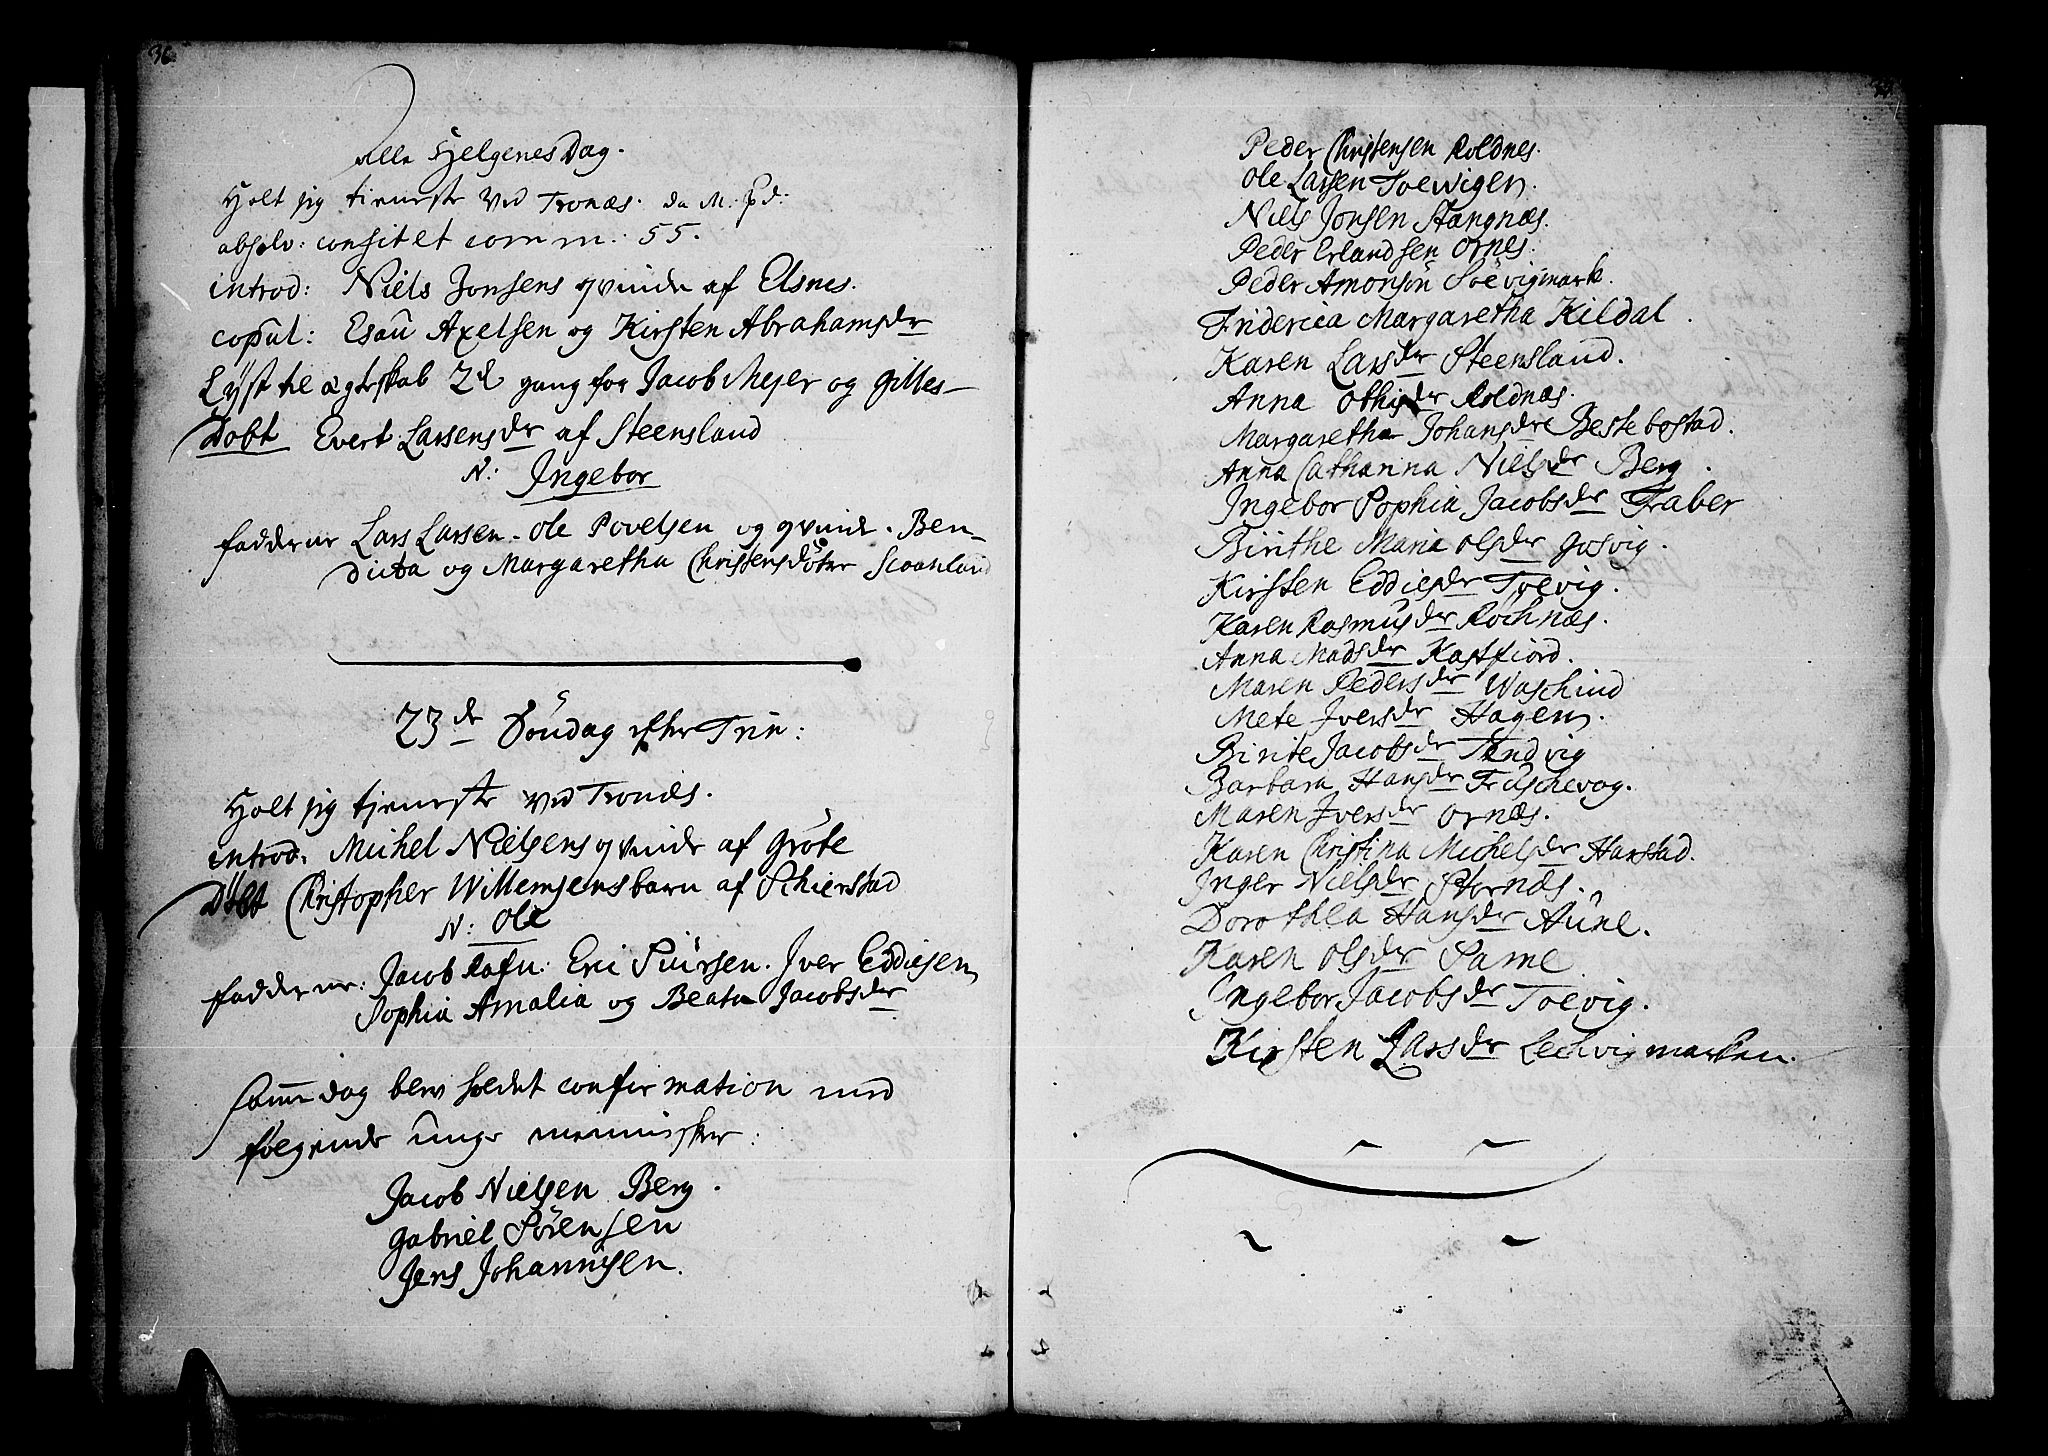 36
Alle Helgenes Dag.
Holt jeg tieneste Ved Tronæs. da M. Pd:
absolv: confitet comm: 55.
introd: Niels Jonsens qvinde af Elsnes.
copul: Esau Axelsen og Kirsten Abrahamsdr
Lyst til ægteskab 2d gang for Jacob Mejer og Gilles-
Døbt Evert Larsens dr af Steensland
N: Ingebor
fadderne Lars Larsen. Ole Povelsen og qvinde. Ben-
dicta og Margaretha Christensdøter Scaanland
23de Søndag efter Trin:
Holt jeg tjeneste ved Tronæs.
introd: Michel Nielsens qvinde af Grøte
Døbt Christopher Willemsens barn af Schierstad
N: Ole
fadderne: Jacob Rafn. Eric Siursen. Iver Eddiesen
Sophia Amalia og Beata Jacobsdr
samme dag blev holdet confirmation med
følgende unge mennisker:
Jacob Nielsen Berg.
Gabriel Sørensen
Jens Johannisen.
Peder Christensen Roldnes.
Ole Larsen Toevigen.
Niels Jonsen Stangnæs.
Peder Erlandsen Ornes.
Peder Amonsøn Soevigmark.
Fridericca Margaretha Kildal.
Karen Larsdr Steensland.
Anna Othisdr Roldnæs.
Margaretha Johansdr Bestebostad.
Anna Catharina Nielsdr Berg.
Ingebor Sophia Jacobsdr Traber
Birithe Maria Olsdr Gosvig.
Kirsten Eddiesdr Toevig.
Karen Rasmusdr Rochnæs.
Anna Madsdr Kastfiord.
Maren Pedersdr Waschind
Mete Iversdr Hagen.
Birite Jacobsdr Sandvig
Barbara Hansdr Frischevog.
Maren Iversdr Ornæs.
Karen Christina Michelsdr Harstad.
Inger Nielsdr Stornæs.
Dorothea Hansdr Aune.
Karen Olsdr Same.
Ingebor Jacobsdr Toevig.
Kirsten Larsdr Lechvigmarken.